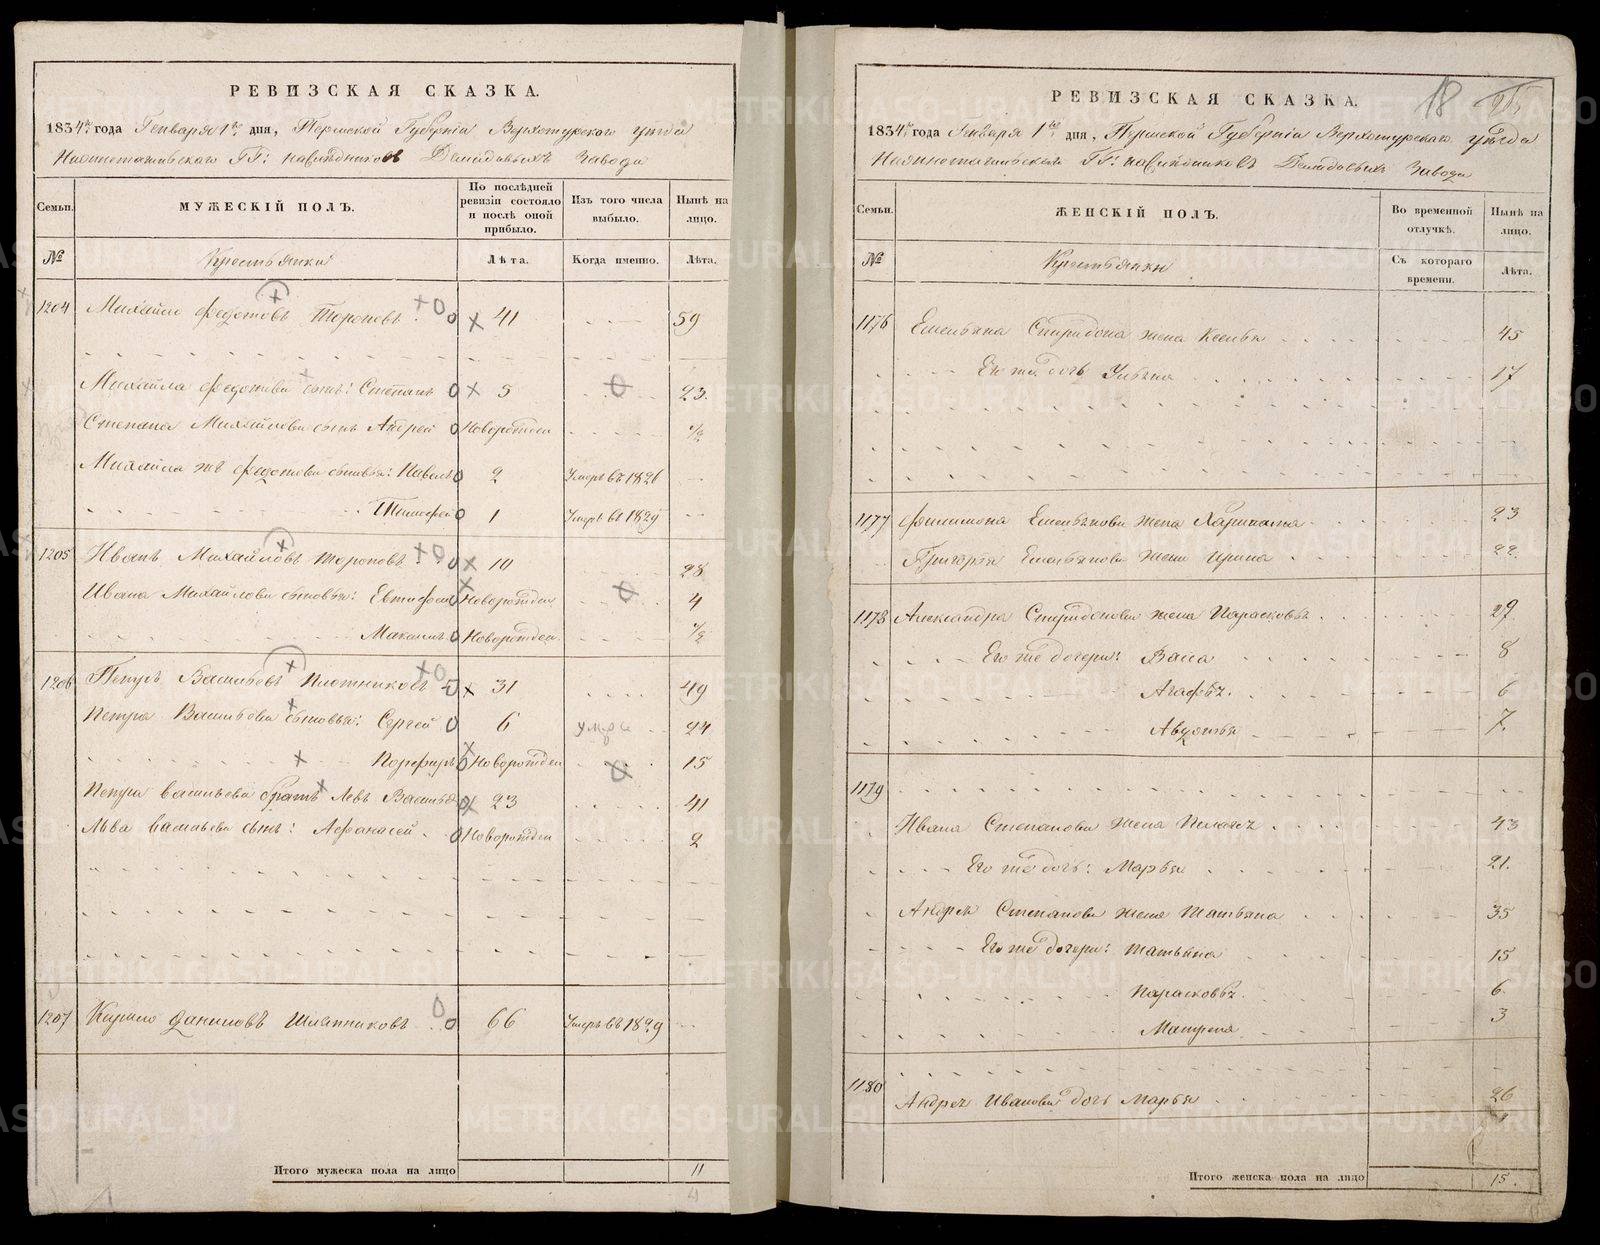 РЕВИЗСКАЯ СКАЗКА.
1834го года Генваря 1го дня, Пермской Губерніи Верхотурского уезда
Нижнетагильскаго ГГ: наследников Демидовыхъ Завода
Семьи. МУЖЕСКІЙ ПОЛЪ. По послѣдней ревизіи состояло и послѣ оной прибыло. Изъ того числа выбыло. Нынѣ на лицо.
№ Крестьянки Лѣта. Когда именно. Лѣта.
1204 Михайло Федотовъ Тороповъ 41 59
Михайла Федотова сынъ: Степанъ 5 23
Степана Михайлова сынъ Андрей Новорожден 1/2
Михайла же Федотова сыновья: Павелъ 2 Умеръ въ 1826
Тимофей 1 Умеръ въ 1829
1205 Иванъ Михайловъ Тороповъ 10 28
Ивана Михайлова сыновья: Новорожден 4
Максимъ Новорожден 1/2
1206 Петръ Васильевъ Плотниковъ 31 49
Петра Васильева сыновья: Сергей 6 умре 24
Порфиръ Новорожден 15
Петра Васильева братъ Левъ Васильевъ 23 41
Льва Васильева сынъ: Афанасей Новорожден 2
1207 Кирило Даниловъ 66 Умеръ въ 1829
Итого мужеска пола на лицо 11
4
18
РЕВИЗСКАЯ СКАЗКА.
1834го года Генваря 1го дня, Пермской Губерніи Верхотурскаго уѣзда
Нижнетагильскаго ГГ: наследниковъ Демидовыхъ Завода
Семьи. ЖЕНСКІЙ ПОЛЪ. Во временной отлучкѣ. Нынѣ на лицо.
№ Крестьянки Съ котораго времени. Лѣта.
1176 Емельяна Спиридона жена Ксенья 45
Его же дочь Ульяна 17
1177 Филимона Емельянова жена 23
Григорья Емельянова жена Ирина 22
1178 Александра Спиридонова жена Парасковья 29
Его же дочери: Васса 8
Агафья 6
Авдотья 7
1179
Ивана Степанова жена Пелагея 43
Его же дочь: Марья 21
Андрея Степанова жена Татьяна 35
Его же дочери: Татьяна 15
Парасковья 6
Матрена 3
1180
Андрея Иванова дочь Марья 26
Итого женска пола на лицо 15.